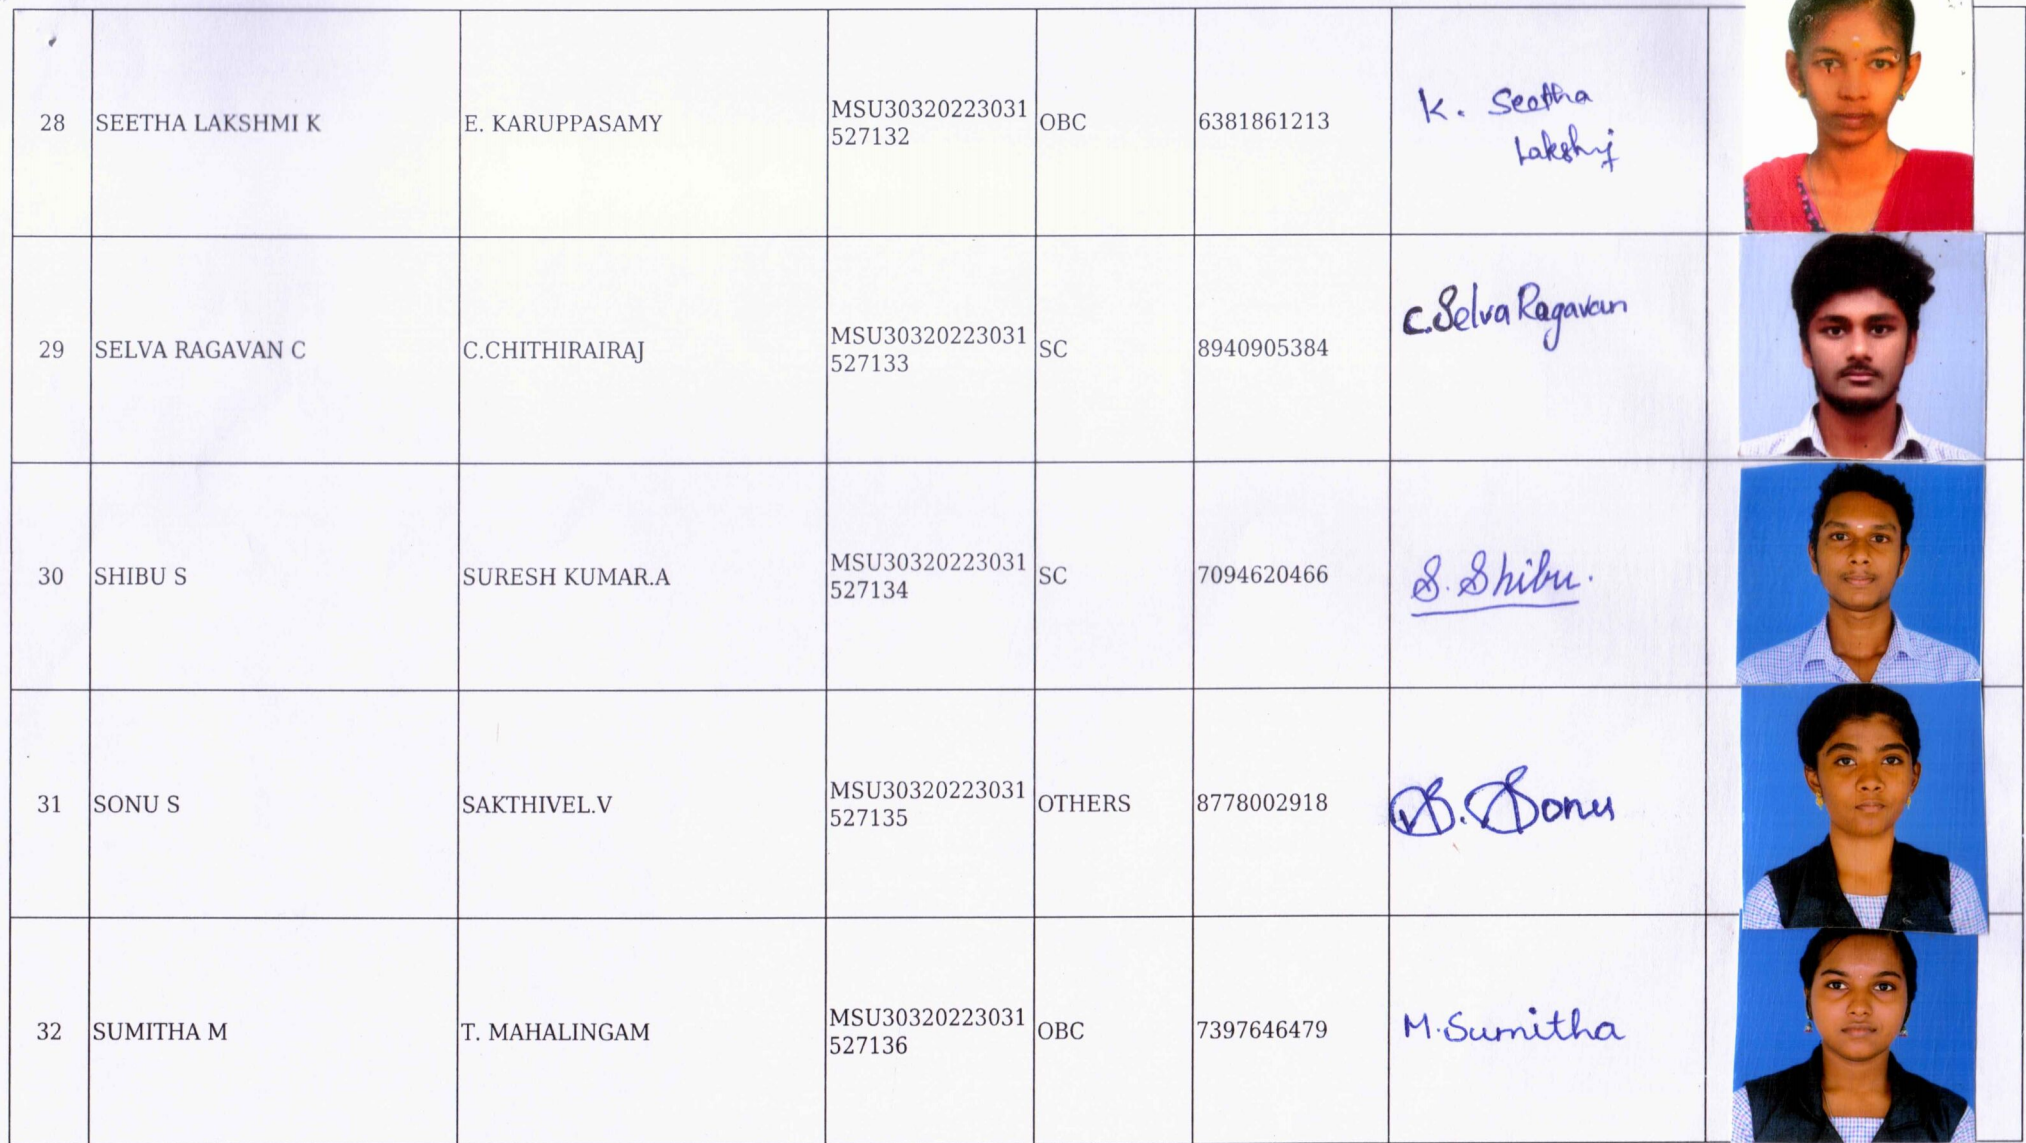 28 SEETHA LAKSHMI K E. KARUPPASAMY MSU30320223031 OBC 6381861213 K. Seetha
527132 Lakshmi
29 SELVA RAGAVAN C C.CHITHIRAIRAJ MSU30320223031 SC 8940905384 C.Selva Ragavan
527133
30 SHIBU S SURESH KUMAR.A MSU30320223031 SC 7094620466 S. Shibu.
527134
31 SONU S SAKTHIVEL.V MSU30320223031 OTHERS 8778002918 S. Sonu
527135
32 SUMITHA M T. MAHALINGAM MSU30320223031 OBC 7397646479 M.Sumitha
527136